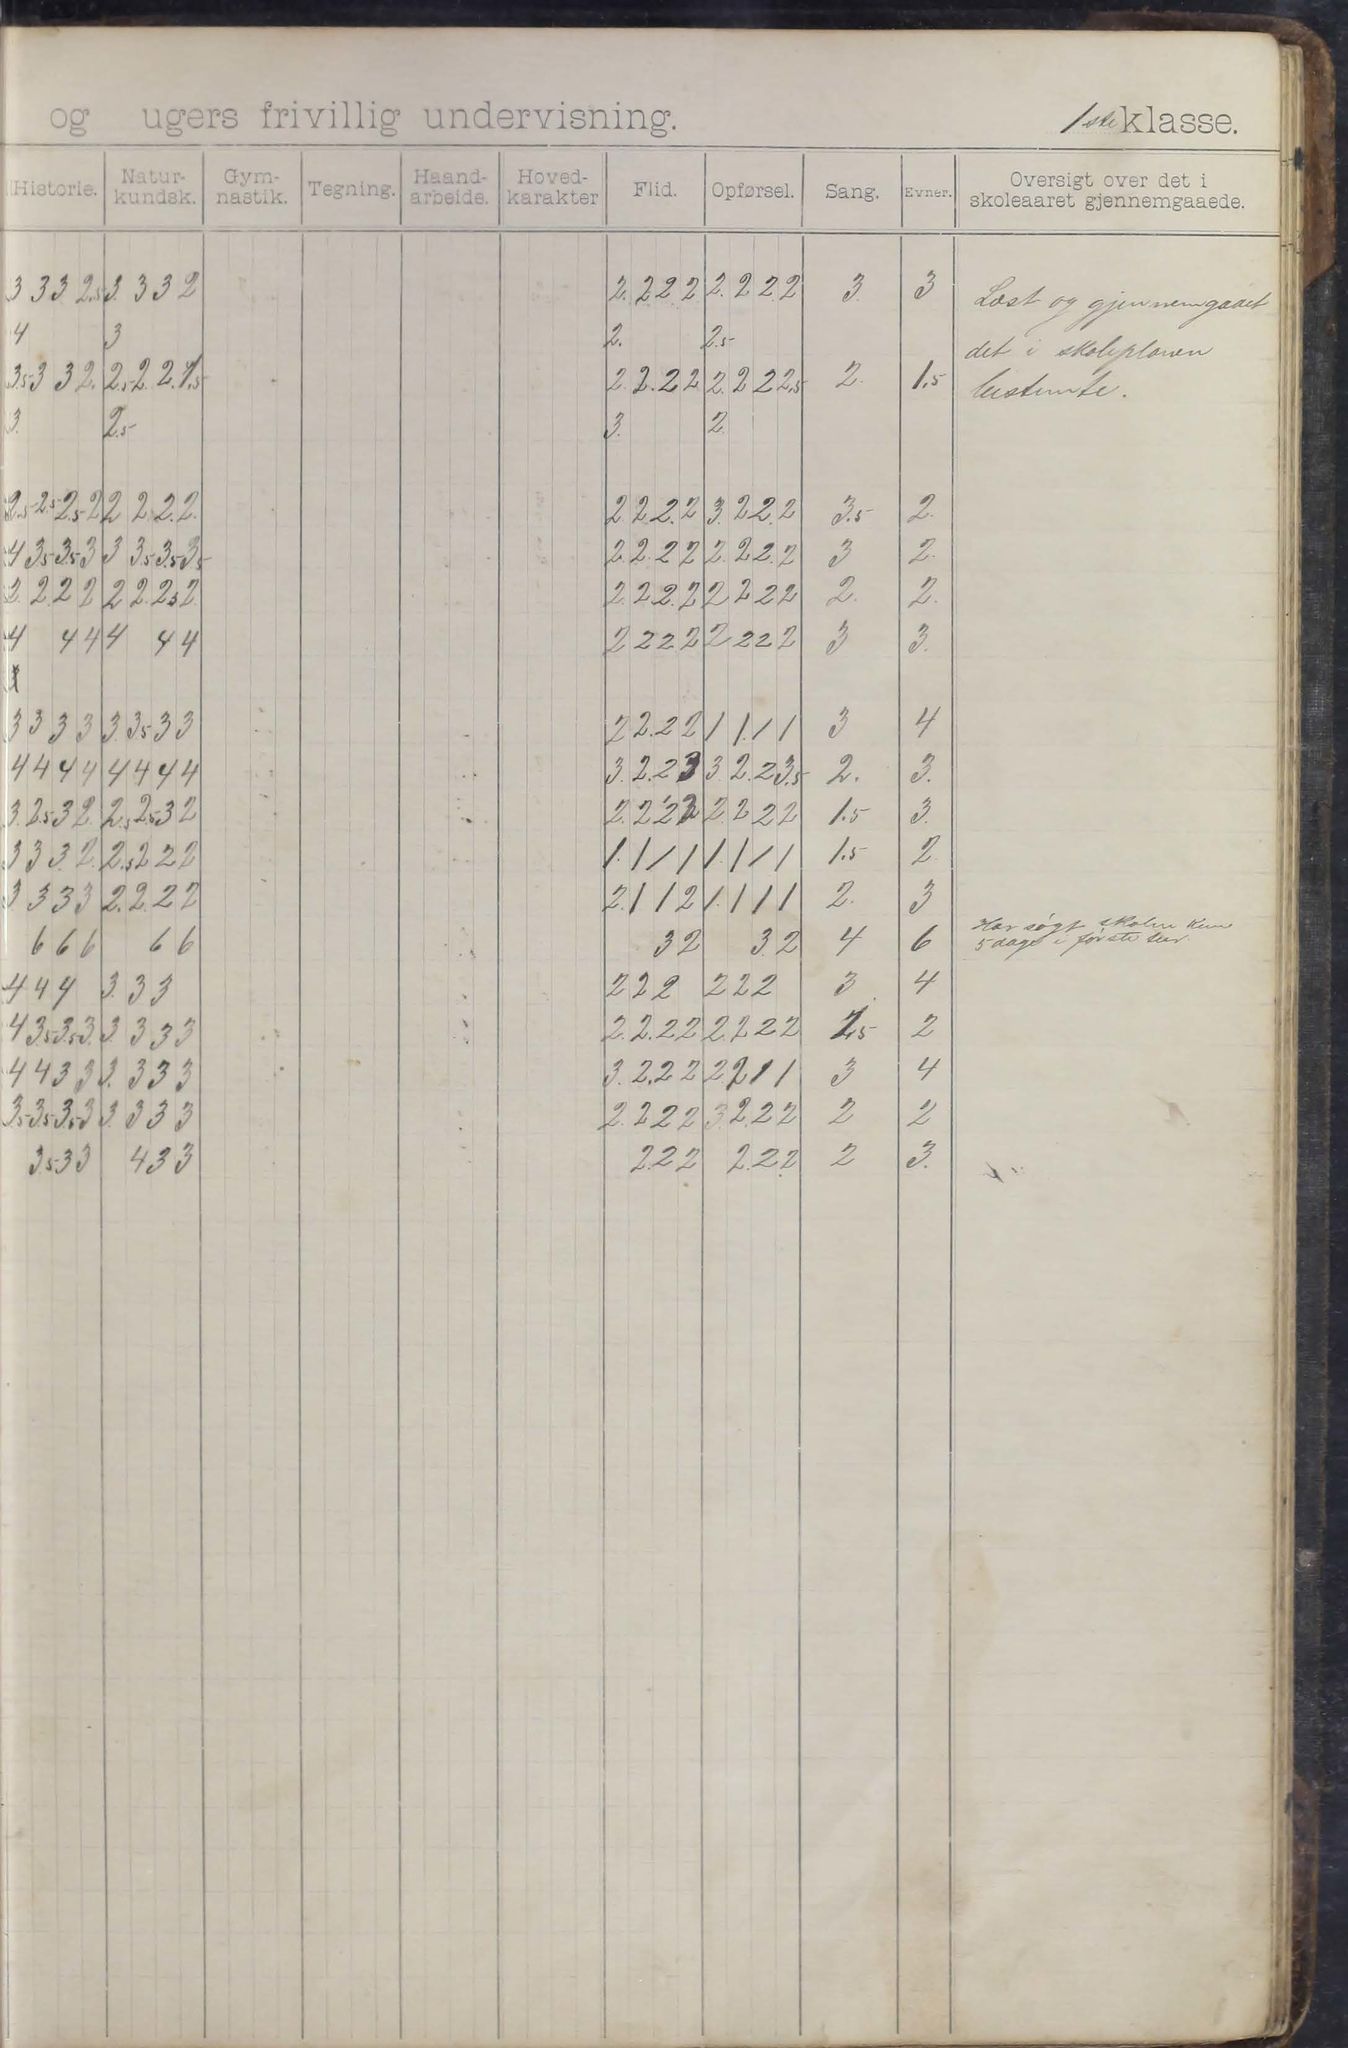 og ugers frivillig undervisning. 1ste klasse.
Historie. Natur-kundsk. Gym-nastik. Tegning. Haand-arbeide. Hoved-karakter Flid. Opførsel. Sang. Evner. Oversigt over det i skoleaaret gjennemgaaede.
3 3 3 2.5 3. 3 3 2 2. 2 2 2 2. 2 2 2 3. 3 Læst og gjennemgaaet
4 3 2. 2.5
det i skoleplanen
3.5 3 3 2. 2.5 2. 2. 1.5 2. 2. 2 2 2. 2 2 2.5 2. 1.5 bestemte.
3. 2.5 3. 2.
2.5 2.5 2.5 2 2 2. 2. 2. 2 2. 2. 2 3. 2 2. 2 3.5 2.
4 3.5 3.5 3 3 3.5 3.5 3.5 2. 2. 2 2 2. 2 2. 2 3 2.
2. 2. 2 2 2 2. 2.5 2. 2. 2. 2. 2 2 2 2 2 2. 2.
4 4 4 4 4 4 2 2 2 2 2 2 2 2 3 3.
3 3 3 3 3. 3.5 3 3 2 2. 2 2 1 1. 1 1 3 4
4 4 4 4 4 4 4 4 3. 2. 2 3 3. 2. 2 3.5 2. 3.
3. 2.5 3 2. 2.5 2.5 3 2 2. 2 2 2 2. 2 2 2 1.5 3.
3 3 3. 2. 2.5 2 2 2 1. 1 1 1 1. 1 1 1 1.5 2.
3 3 3 3 2. 2. 2 2 2. 1 1 2 1. 1 1 1 2. 3
Har søgt skolen kun
6 6 6 6 6 3 2 3. 2 4 6 5 dage i første
4 4 4 3. 3 3 2 2 2 2 2 2 3. 4
4 3.5 3.5 3. 3. 3 3 3 2. 2. 2 2 2. 2 2 2 2
4 4 3 3 3. 3 3 3 3. 2. 2 2 2. 2 1 1 3 4
3.5 3.5 3.5 3 3. 3 3 3 2. 2. 2 2 3. 2. 2 2 2 2
3.5 3 3 4 3 3 2. 2 2 2. 2. 2 2 3.